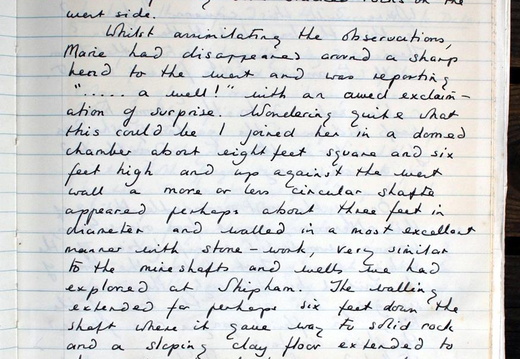 rocks on the
west side.
Whilst assimilating the observations,
Marie had disappeared around a sharp
bend to the west and was reporting
"..... a well!" with an awed exclam-
ation of surprise. Wondering quite what
this could be I joined her in a domed
chamber about eight feet square and six
feet high and up against the west
wall a more or less circular shaft
appeared perhaps about three feet in
diameter and walled in a most excellent
manner with stone-work, very similar
to the mineshafts and wells we had
explored at Shipham. The walling
extended for perhaps six feet down the
shaft where it gave way to solid rock
and a sloping clay floor extended to